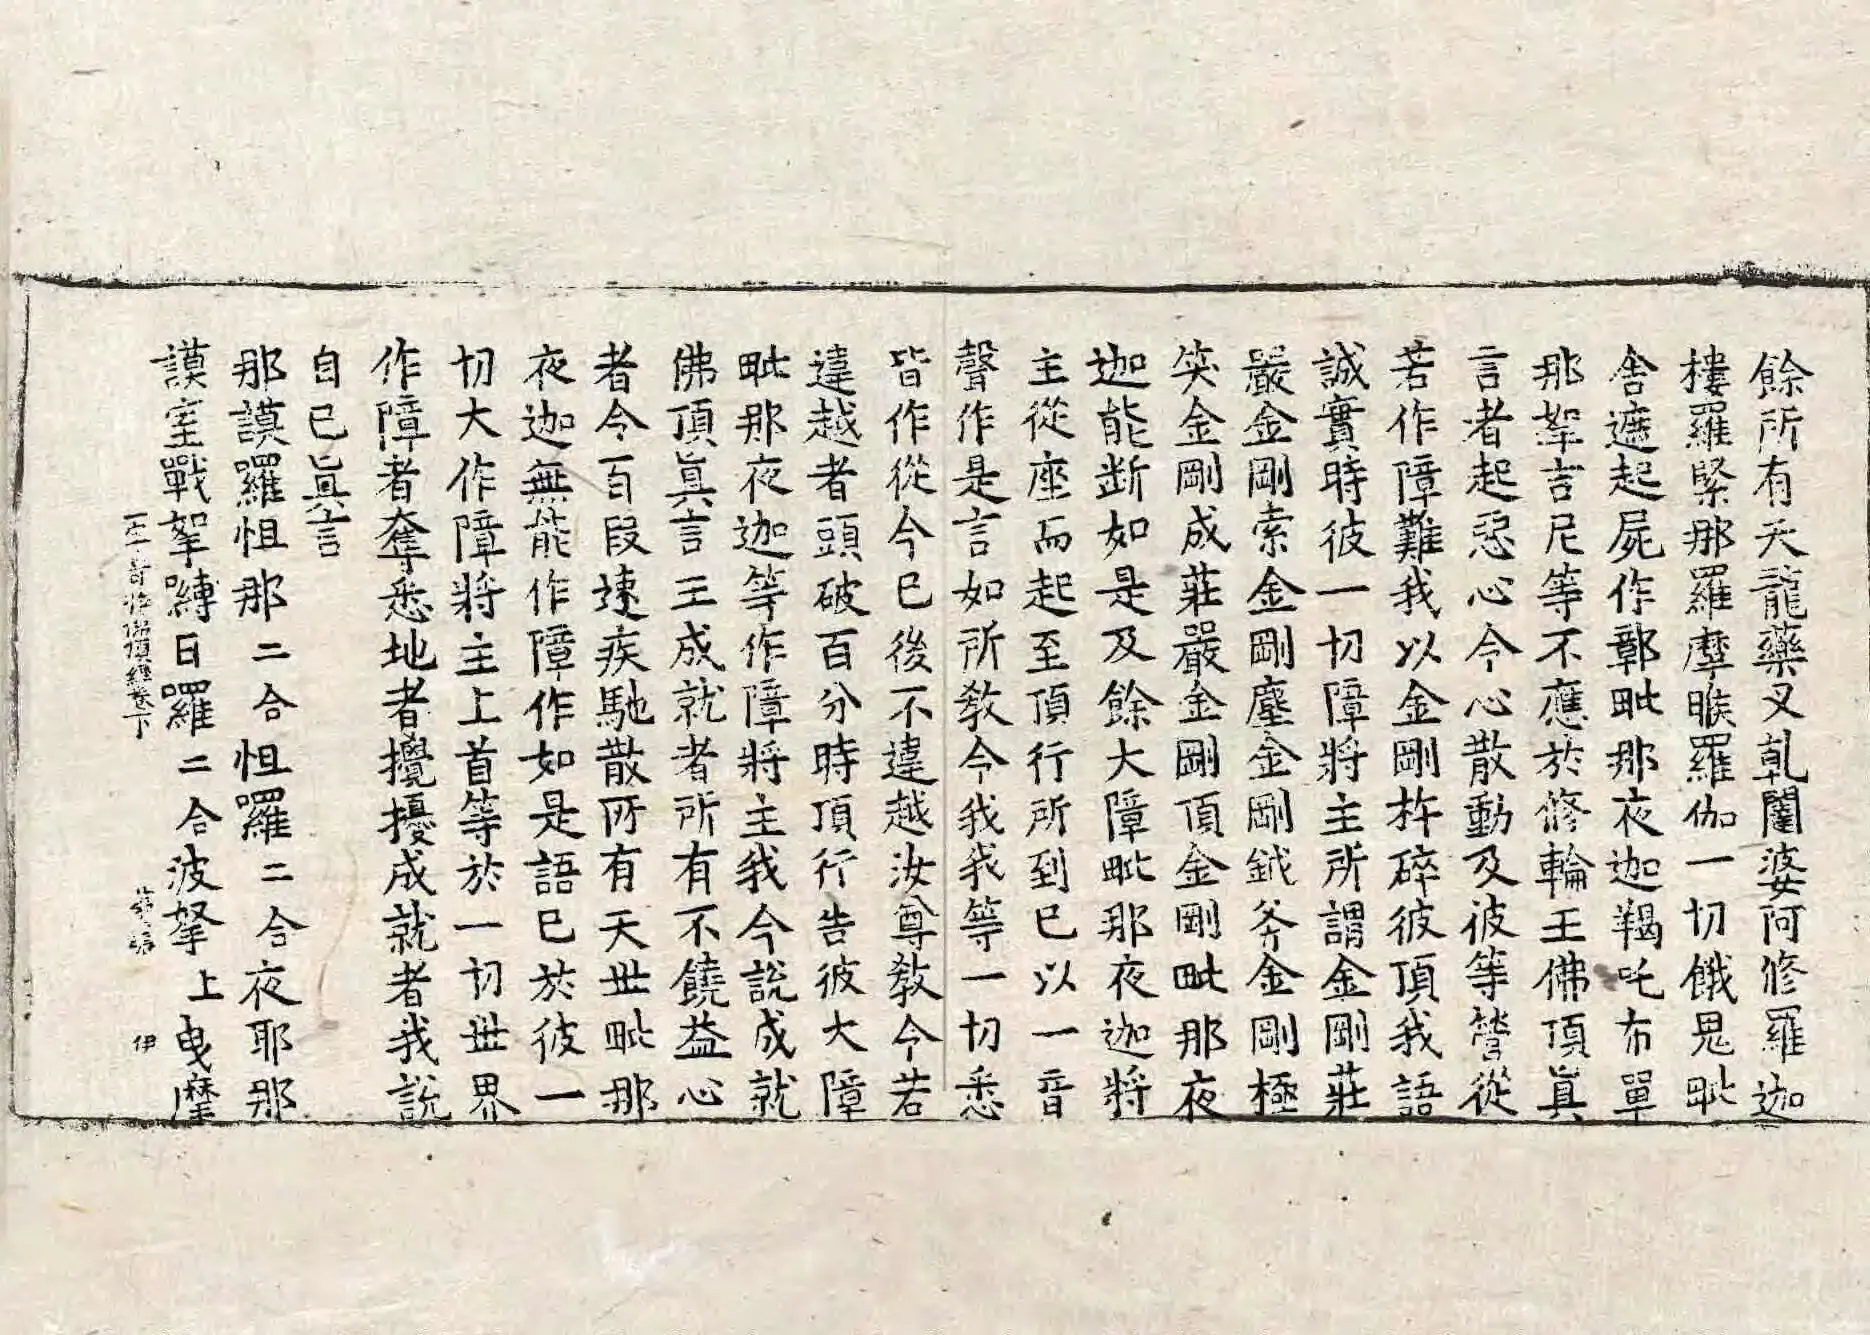 餘所有天龍藥叉乹闥婆阿修羅迦
樓羅緊那羅摩睺羅伽一切餓鬼毗
舍遮起屍作鄣毗那夜迦羯吒布單
那拏言尼等不應於修輪王佛頂眞
言者起惡心令心散動及彼等營從
若作障難我以金剛杵碎彼頂我語
誠實時彼一切障將主所謂金剛莊
嚴金剛索金剛塵金剛鉞斧金剛極
笑金剛成莊嚴金剛頂金剛毗那夜
迦能断如是及餘大障毗那夜迦將
主從座而起至頂行所到已以一音
聲作是言如所敎令我我等一切悉
皆作從今已後不違越汝尊敎令若
違越者頭破百分時頂行告彼大障
毗那夜迦等作障將主我今說成就
佛頂眞言王成就者所有不饒益心
者令百段速疾馳散所有天世毗那
夜迦無能作障作如是語已於彼一
切大作障將主上首等於一切世界
作障者奪悉地者攪擾成就者我說
自已眞言
那謨囉怛那二合怛囉二合夜耶那
謨室戰拏嚩日囉二合波拏上曳摩
佛頂經卷下 伊